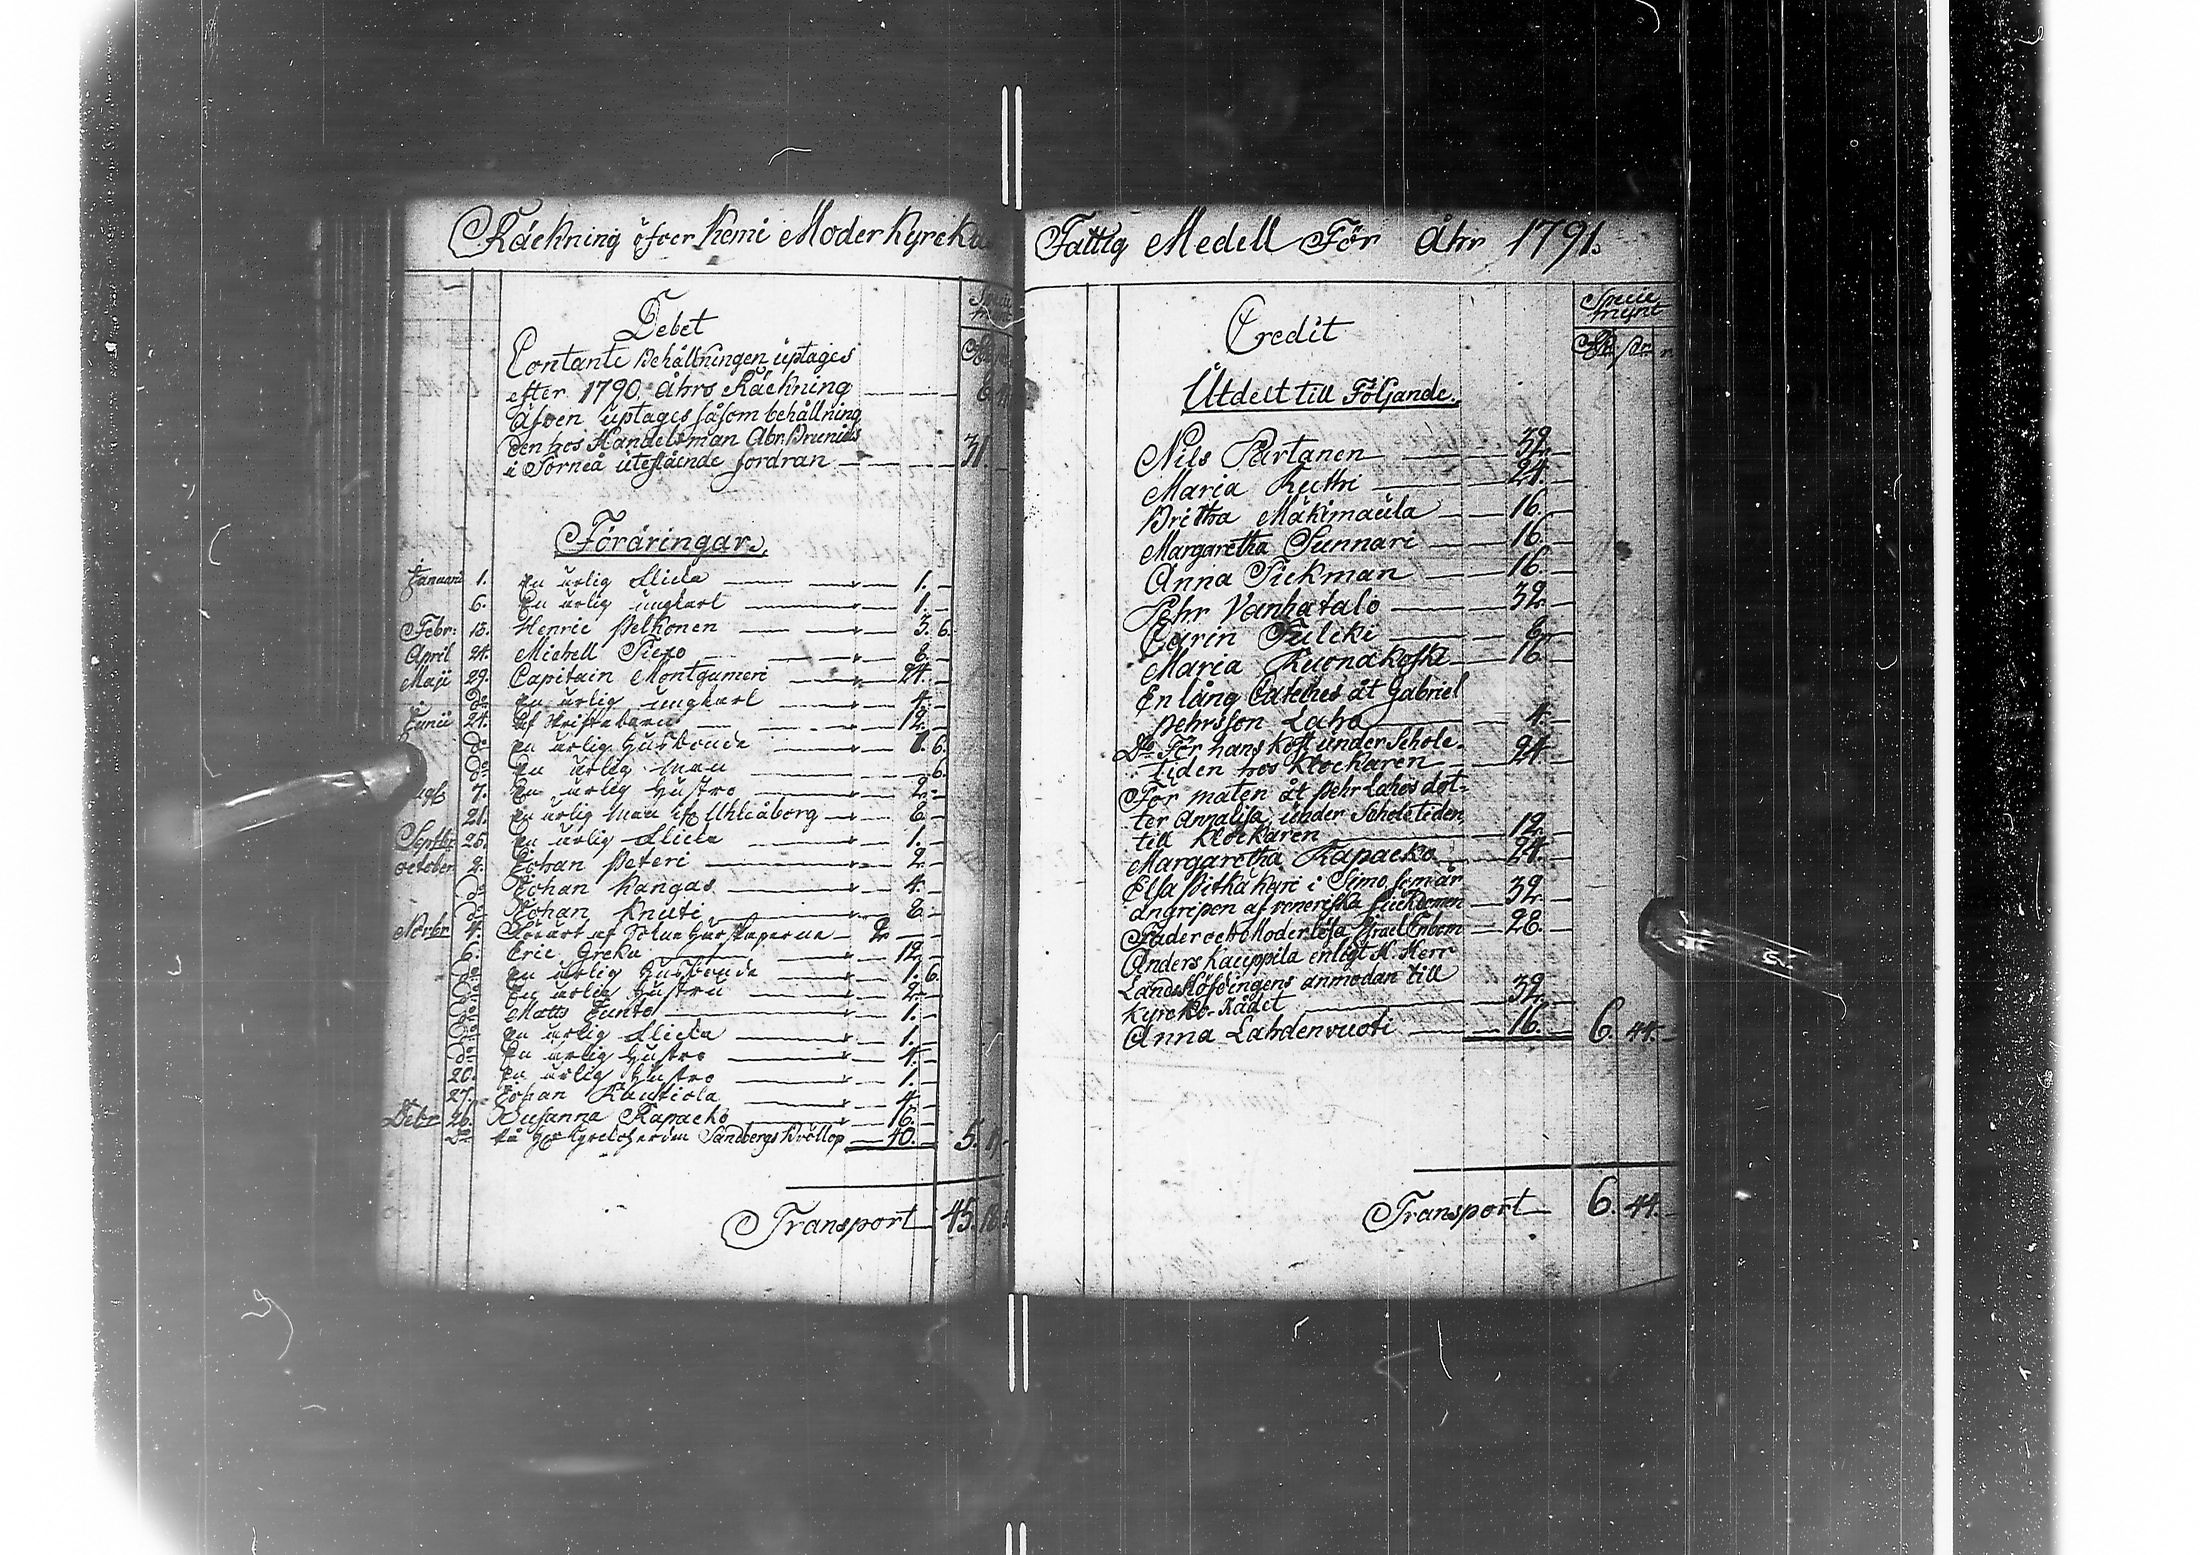 Räckning öfver Kemi Moder Kyrcku
Debet
Contante behållningen uptages
efter 1790 åhrs Räckning 6.
Äfven uptages såsom behållning
den hos Handelsman Abr. Brunius
i Torneå utestående fordran 31.
Föräringar.
Januarii 1. En ärlig flicka 1.
6. En ärlig ungkarl 1.
Febr: 13. Henric Pelkonen 3. 6.
April 24. Michell 8.
Maji 29. Capitain Montgumeri 24.
Do En ärlig ungkarl 4.
Junii 24. 12.
Do En ärlig Husbonde 1. 6.
Do En ärlig Man 6.
7. En ärlig Hustro 2.
21. En ärlig Man af Uhleåborg 8.
Septbr 25. En ärlig flicka 1.
October 2. Johan Peteri 2.
Do Johan Kangas 4.
Do Johan Knuti 8.
Novbr 4. Förärt af
6. Eric Greku 12.
Do En ärlig Husbonde 1. 6.
Do En ärlig Hustru 2.
Do Matts Junto 1.
Do En ärlig flicka 1.
Do En ärlig Hustro 4.
20. En ärlig Hustro 1.
27. Johan Rautiola 4.
Debr 26. Susanna Rapacko 16.
Do På Hr Kyrckoherden Sandbergs Bröllop 40. 5.
Transport 45.
Fattig Medell För Åhr 1791.
Specie mynt
Credit
Utdelt till Följande.
Nils Partanen 32.
Maria Rutti 24.
Britha Mäkimaula 16.
Margaretha Sunnari 16.
Anna Sickman 16.
Pehr Vanhatalo 32.
Carin Fulcki 8.
Maria Kuonakoski 16.
En lång Catches åt Gabriel
Pehrsson Laho 4.
Do För hans kost under Schole-
tiden hos Klockaren 24.
För maten åt Pehr Lahos dot-
ter Annalisa under Scholetiden
till Klockaren 12.
Margaretha Rapacko 24.
Elsa Pitkakari i Simo, som är
angripen af veneriska siuckdomen 32.
Fader och Moderlösa Israel Enbom 28.
Anders Kauppila enligt H. Herr
Landshöfdingens anmodan till
Kyrcko-Rådet 32.
Anna Lahdenvuoti 16. 6. 44.
Transport 6. 44.